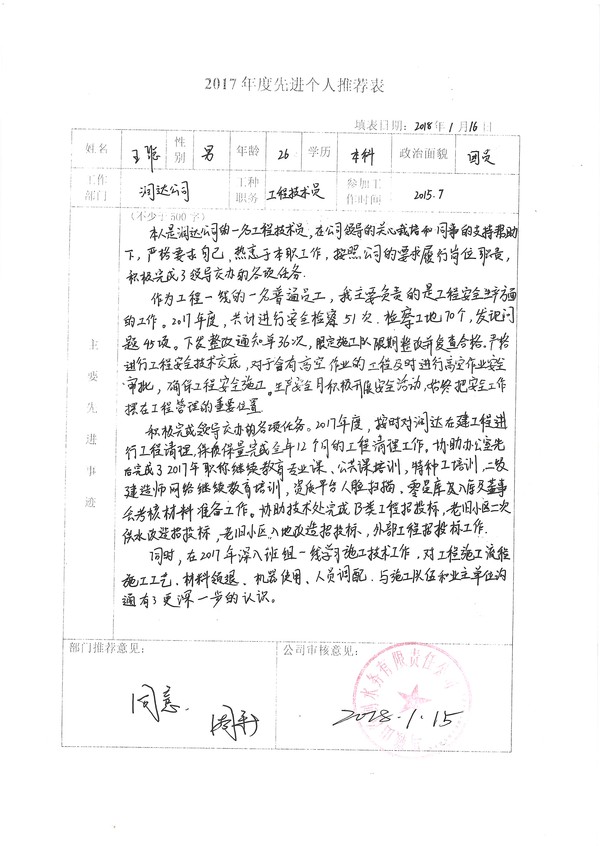 2017年度先进个人推荐表
填表日期：2018年1月16日
姓名 王聪 性别 男 年龄 26 学历 本科 政治面貌 团员
工作部门 润达公司 工种职务 工程技术员 参加工作时间 2015.7
主要先进事迹
（不少于500字）
本人是润达公司的一名工程技术员，在公司领导的关心栽培和同事的支持帮助
下，严格要求自己，热衷于本职工作，按照公司的要求履行岗位职责，
积极完成了领导交办的各项任务.
作为工程一线的一名普通员工，我主要负责的是工程安全生产方面
的工作。2017年度，共计进行安全检察51次.检察工地70个，发现问
题45项。下发整改通知单36次，限定施工队限期整改并复查合格。严格
进行工程安全技术交底，对于含有高空作业的工程及时进行高空作业安全
审批，确保工程安全施工。生产安全月积极开展安全活动，始终把安全工作
摆在工程管理的重要位置
积极完成领导交办的各项任务。2017年度，按时对润达在建工程进
行工程清理，保质保量完成全年12个月的工程清理工作。协助办公室先
后完成了2017年职称继续教育专业课、公共课培训，特种工培训，二级
建造师网络继续教育培训，资质平台人脸扫描、零星库复入库及董事
会考核材料准备工作。协助技术处完成B类工程招投标，老旧小区二次
供水改造招投标，老旧小区入地改造招投标，外部工程招投标工作.
同时，在2017年深入班组一线学习施工技术工作，对工程施工流程
施工工艺、材料领退、机器使用、人员调配.与施工队伍和业主单位沟
通有了更深一步的认识。
部门推荐意见：
公司审核意见：
同意
2018.1.15
水务有限责任公司